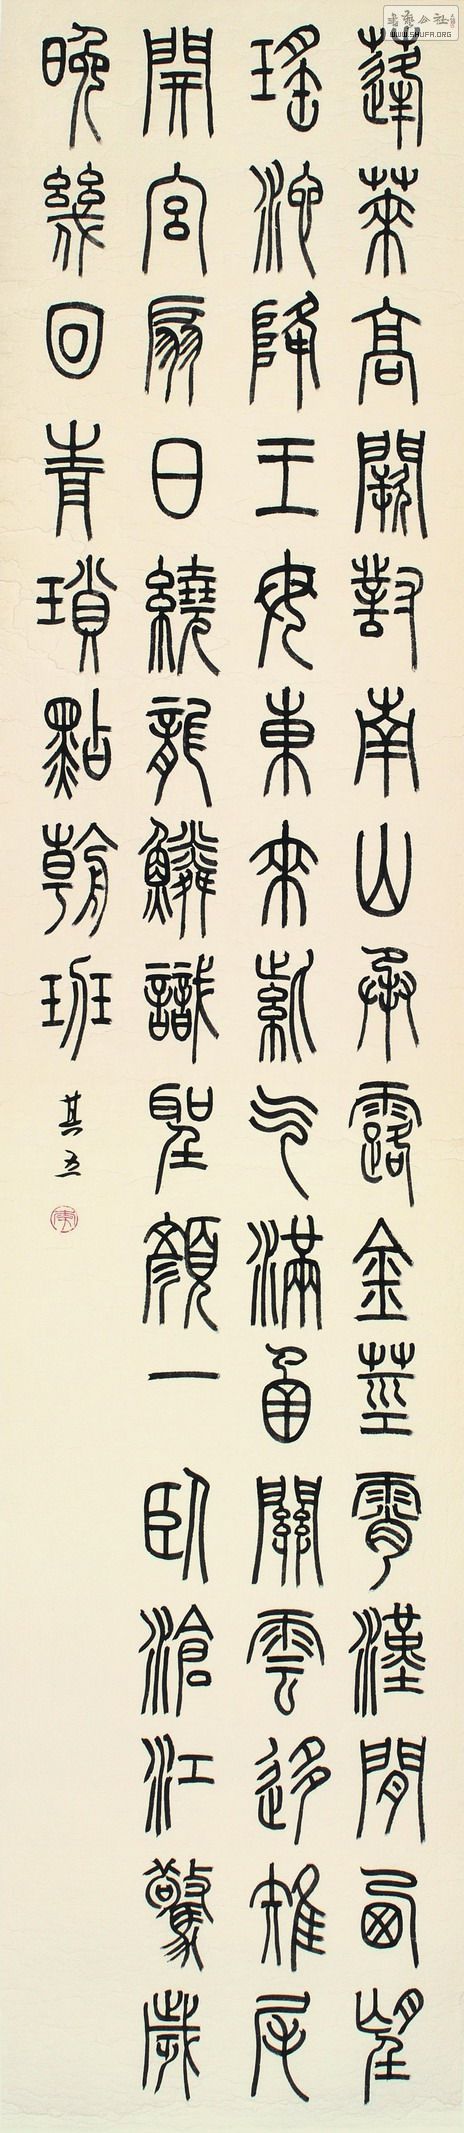 蓬萊高闕對南山承露金莖霄漢間西望
瑤池降王母東來紫气滿函關雲移雉尾
開宮扇日繞龍鱗識聖顏一臥滄江驚歲
晚幾回青瑣點朝班
其五
WWW.SHUFA.ORG